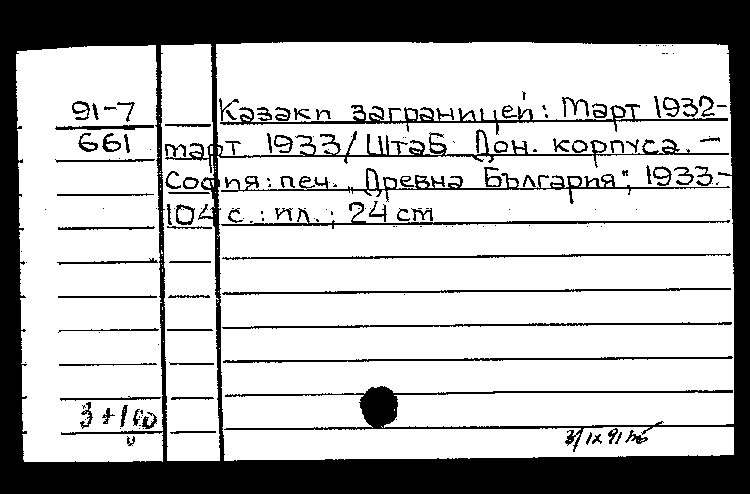 91-7 Казаки заграницей: Март 1932-
661 март 1933/Штаб Дон. корпуса. —
София: печ. „Древна България“, 1933.-
104 с.: ил.; 24 cm